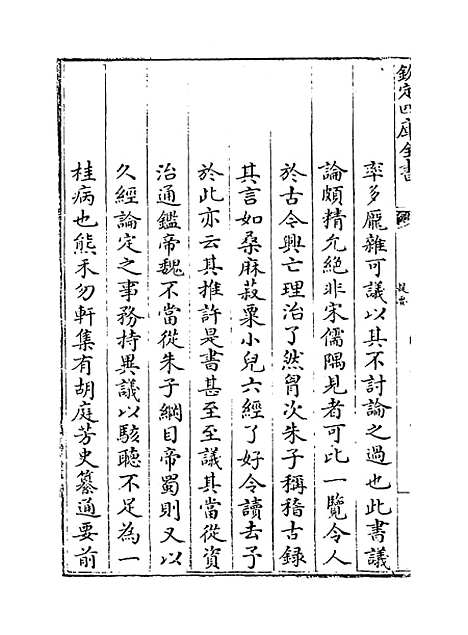 欽定四庫全書
提要
率多龎雜可議以其不討論之過也此書議
論頗精允絕非宋儒隅見者可比一覽令人
於古今興亡理治了然胷次朱子稱稽古錄
其言如桑麻菽粟小兒六經了好令讀去予
於此亦云其推許是書甚至至議其當從資
治通鑑帝魏不當從朱子綱目帝蜀則又以
久經論定之事務持異議以駭聽不足為一
桂病也熊禾勿軒集有胡庭芳史纂通要前